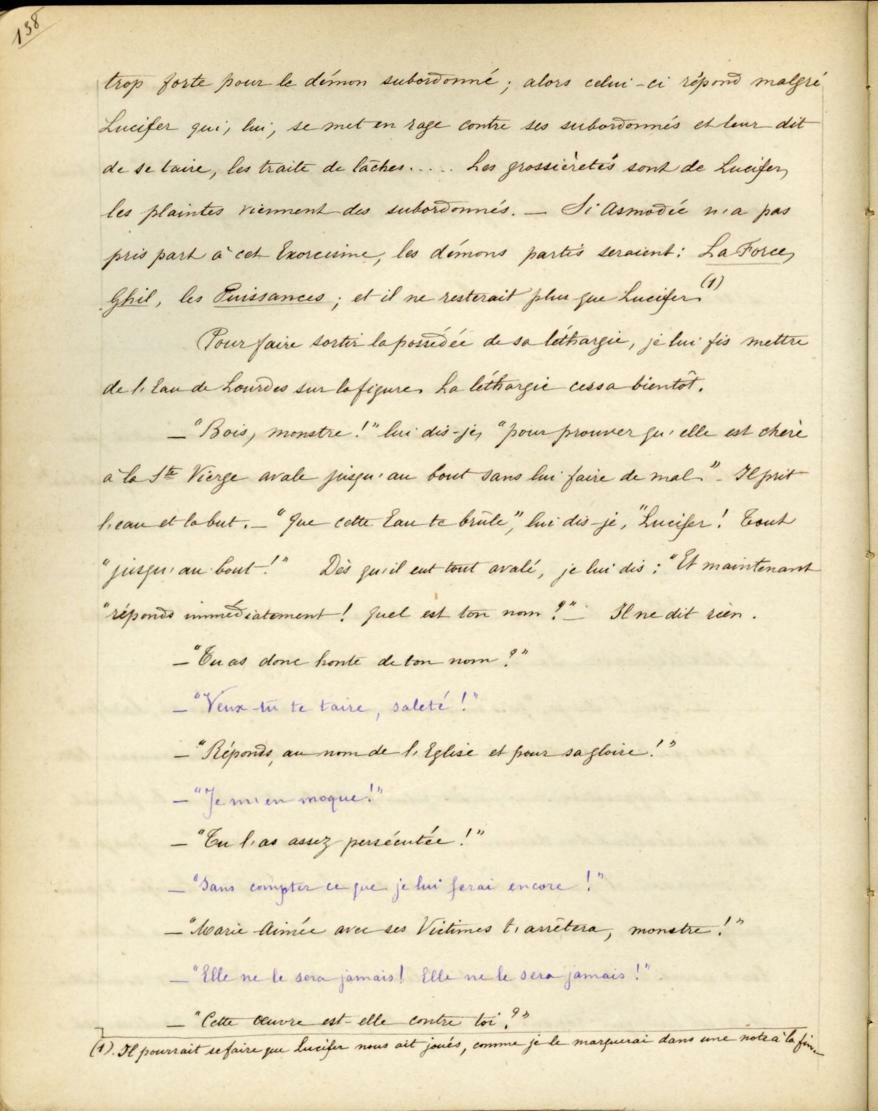 138
trop forte pour le démon subordonné ; alors celui-ci répond malgré
Lucifer qui, lui, se met en rage contre ses subordonnés et leur dit
de se taire, les traite de lâches..... Les grossièretés sont de Lucifer,
les plaintes viennent des subordonnés. — Si Asmodée n'a pas
pris part à cet Exorcisme, les démons partis seraient : La Force,
Ghil, les Puissances ; et il ne resterait plus que Lucifer.(1)
Pour faire sortir la possédée de sa léthargie, je lui fis mettre
de l'Eau de Lourdes sur la figure. La léthargie cessa bientôt.
— "Bois, monstre !" lui dis-je, "pour prouver qu'elle est chère
à la Ste Vierge avale jusqu'au bout sans lui faire de mal." — Il prit
l'eau et la but. — "Que cette Eau te brûle", lui dis-je, "Lucifer ! Tout
"jusqu'au bout !" Dès qu'il eut tout avalé, je lui dis : "Et maintenant
"réponds immédiatement ! Quel est ton nom ?" — Il ne dit rien.
— "Tu as donc honte de ton nom ?"
— "Veux-tu te taire, saleté !"
— "Réponds, au nom de l'Eglise et pour sa gloire !"
— "Je m'en moque !"
— "Tu l'as assez persécutée !"
— "Sans compter ce que je lui ferai encore !"
— "Marie Aimée avec ses Victimes t'arrêtera, monstre !"
— "Elle ne le sera jamais ! Elle ne le sera jamais !"
— "Cette œuvre est-elle contre toi ?"
(1). Il pourrait se faire que Lucifer nous ait joués, comme je le marquerai dans une note à la fin.